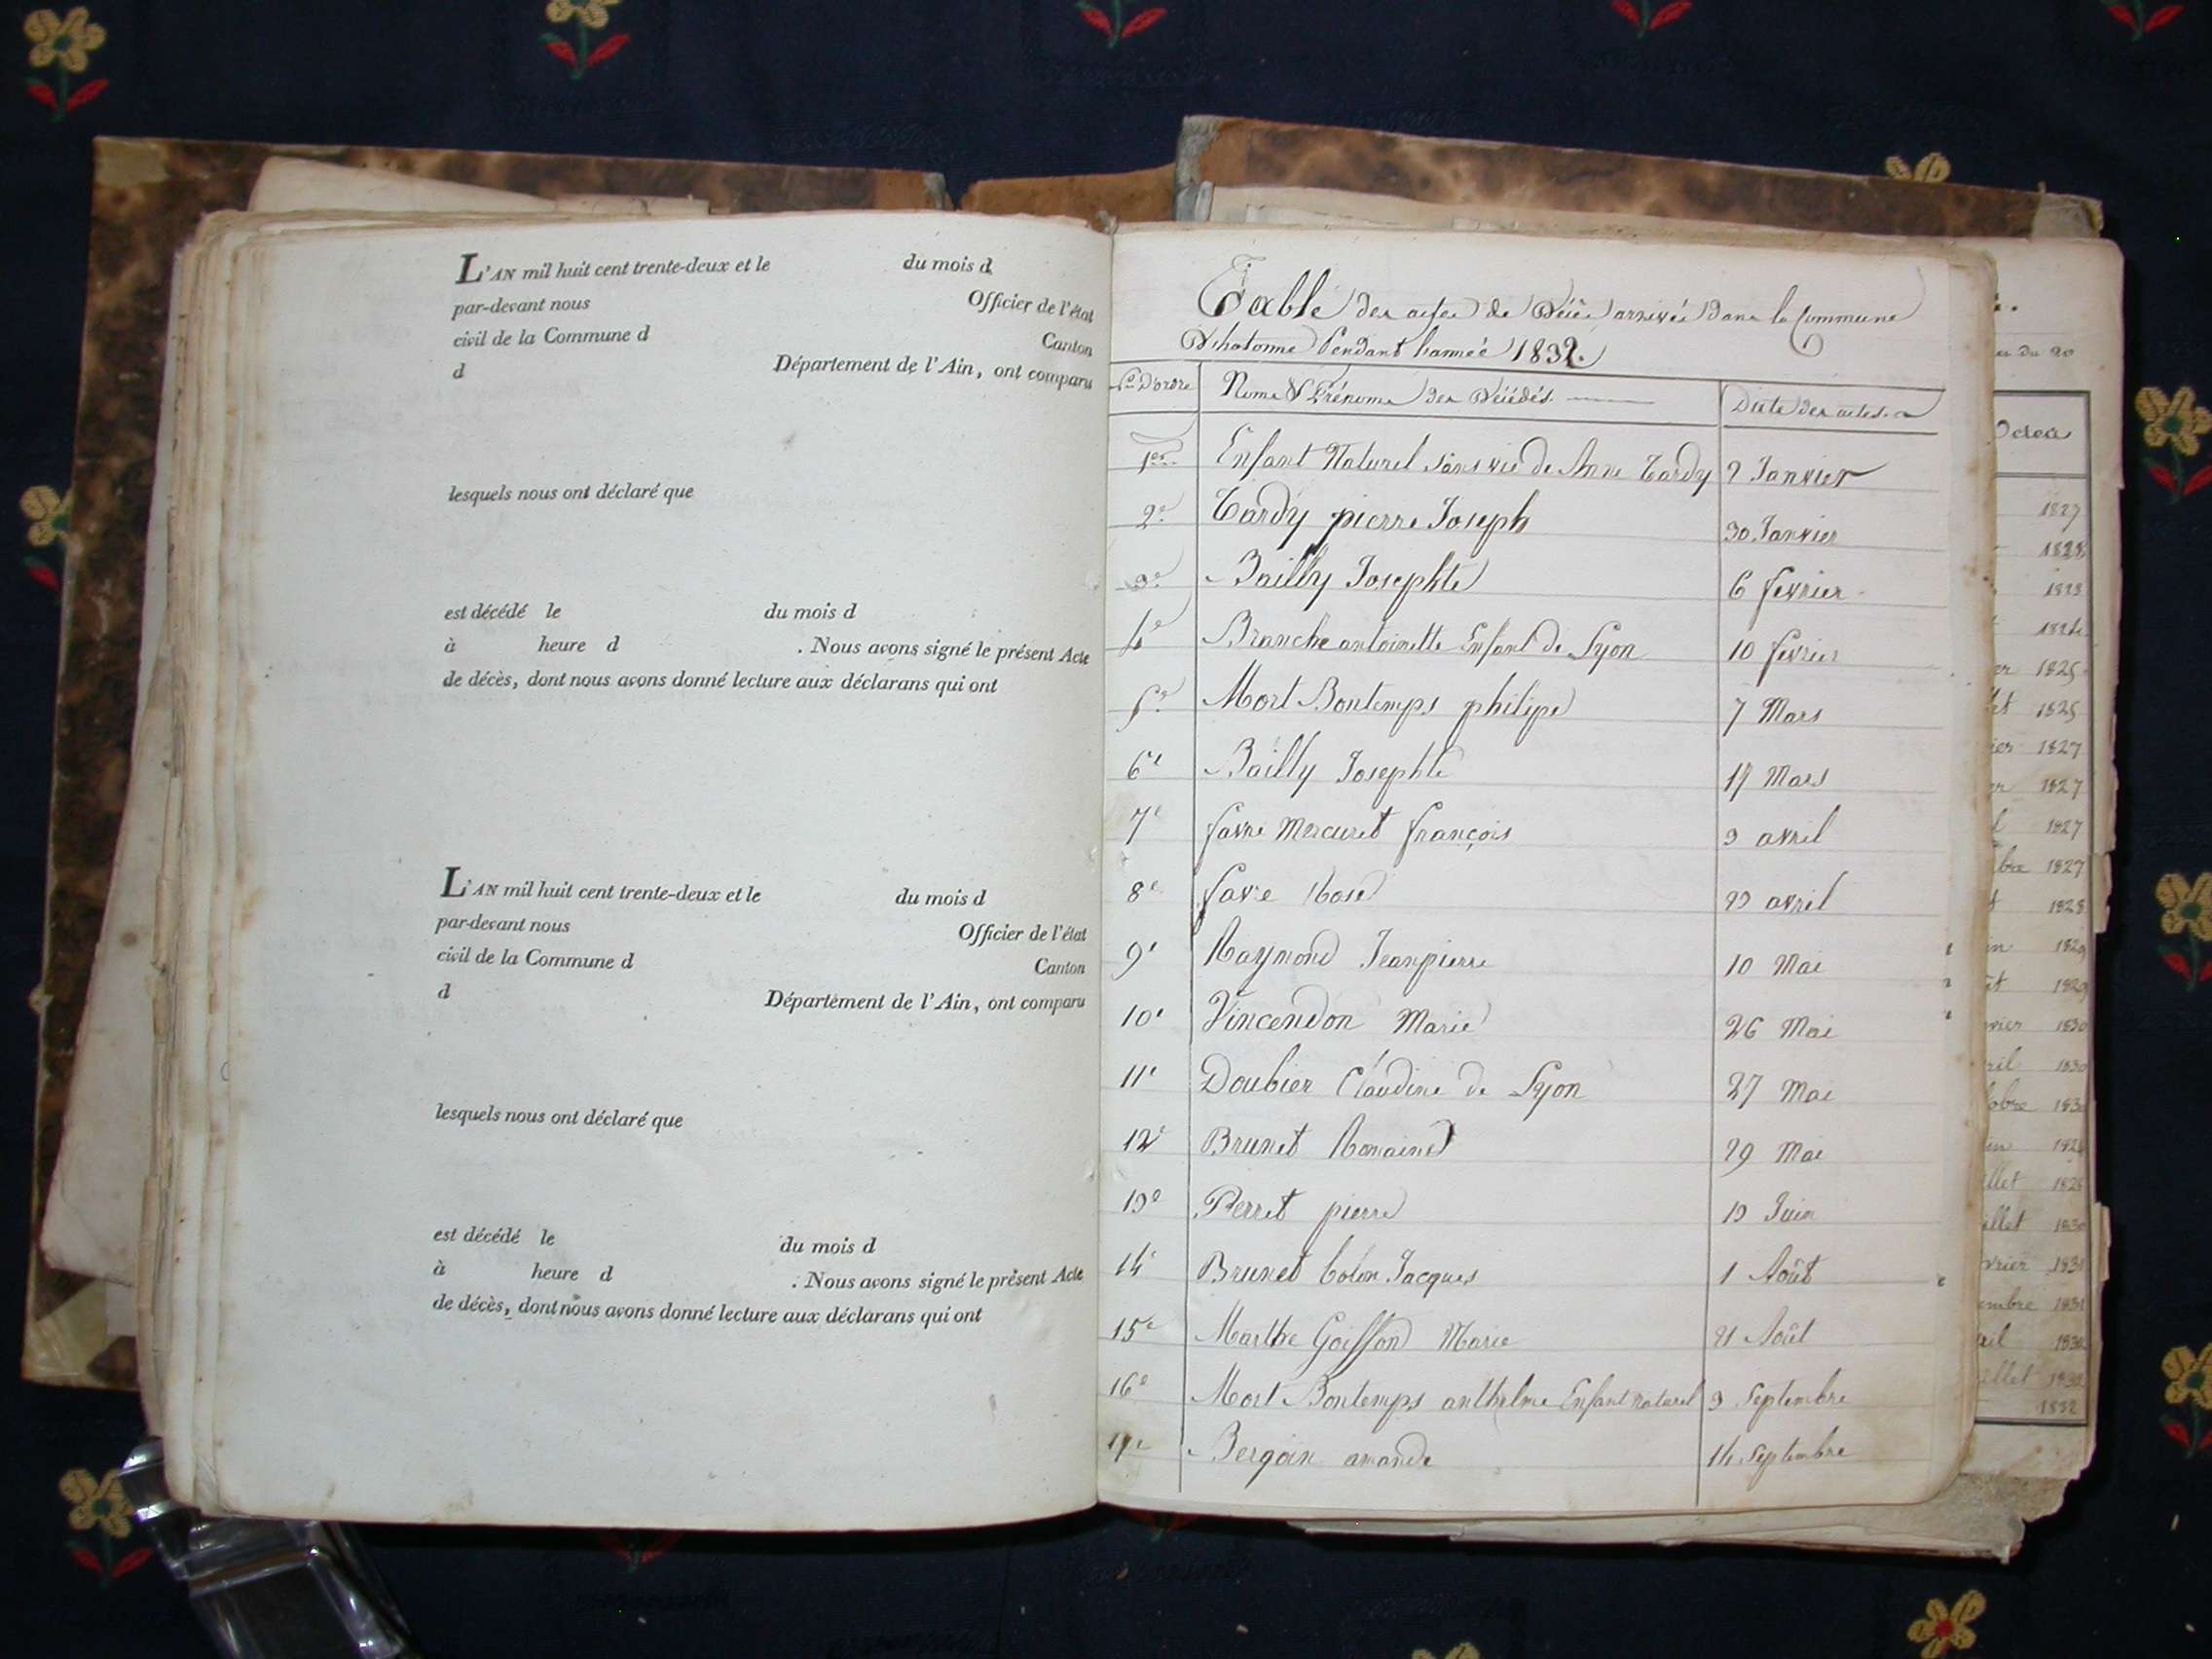 L'AN mil huit cent trente-deux et le du mois d
par-devant nous Officier de l'état
civil de la Commune d Canton
d Département de l'Ain, ont comparu
lesquels nous ont déclaré que
est décédé le du mois d
à heure d . Nous avons signé le présent Acte
de décès, dont nous avons donné lecture aux déclarans qui ont
L'AN mil huit cent trente-deux et le du mois d
par-devant nous Officier de l'état
civil de la Commune d Canton
d Département de l'Ain, ont comparu
lesquels nous ont déclaré que
est décédé le du mois d
à heure d . Nous avons signé le présent Acte
de décès, dont nous avons donné lecture aux déclarans qui ont
Table des actes de Décès arrivés dans la Commune
Pendant l'année 1832.
No D'ordre Noms & Prénoms des Décédés Date des actes
1er Enfant Naturel sans vie de Anne Tardy 2 Janvier
2e Tardy pierre Joseph 30 Janvier
3e Bailly Josephte 6 fevrier
4e Branche antoinette Enfant de Lyon 10 fevrier
5e Mort Bontemps philipe 7 Mars
6e Bailly Josephte 17 Mars
7e favre Mercuret françois 3 avril
8e favre Rose 23 avril
9e Raymond Jeanpierre 10 Mai
10e Vincendon Marie 26 Mai
11e Doubier Claudine de Lyon 27 Mai
12e Brunet Romaine 29 Mai
13e Perret pierre 13 Juin
14e Brunet Colon Jacques 1 Août
15e Marthe Goiffon Marie 21 Août
16e Mort Bontemps anthelme Enfant naturel 3 Septembre
17e Bergoin amande 14 Septembre
1827
1828
1823
1824
1825
1825
1827
1827
1827
1827
1828
1829
1829
1830
1830